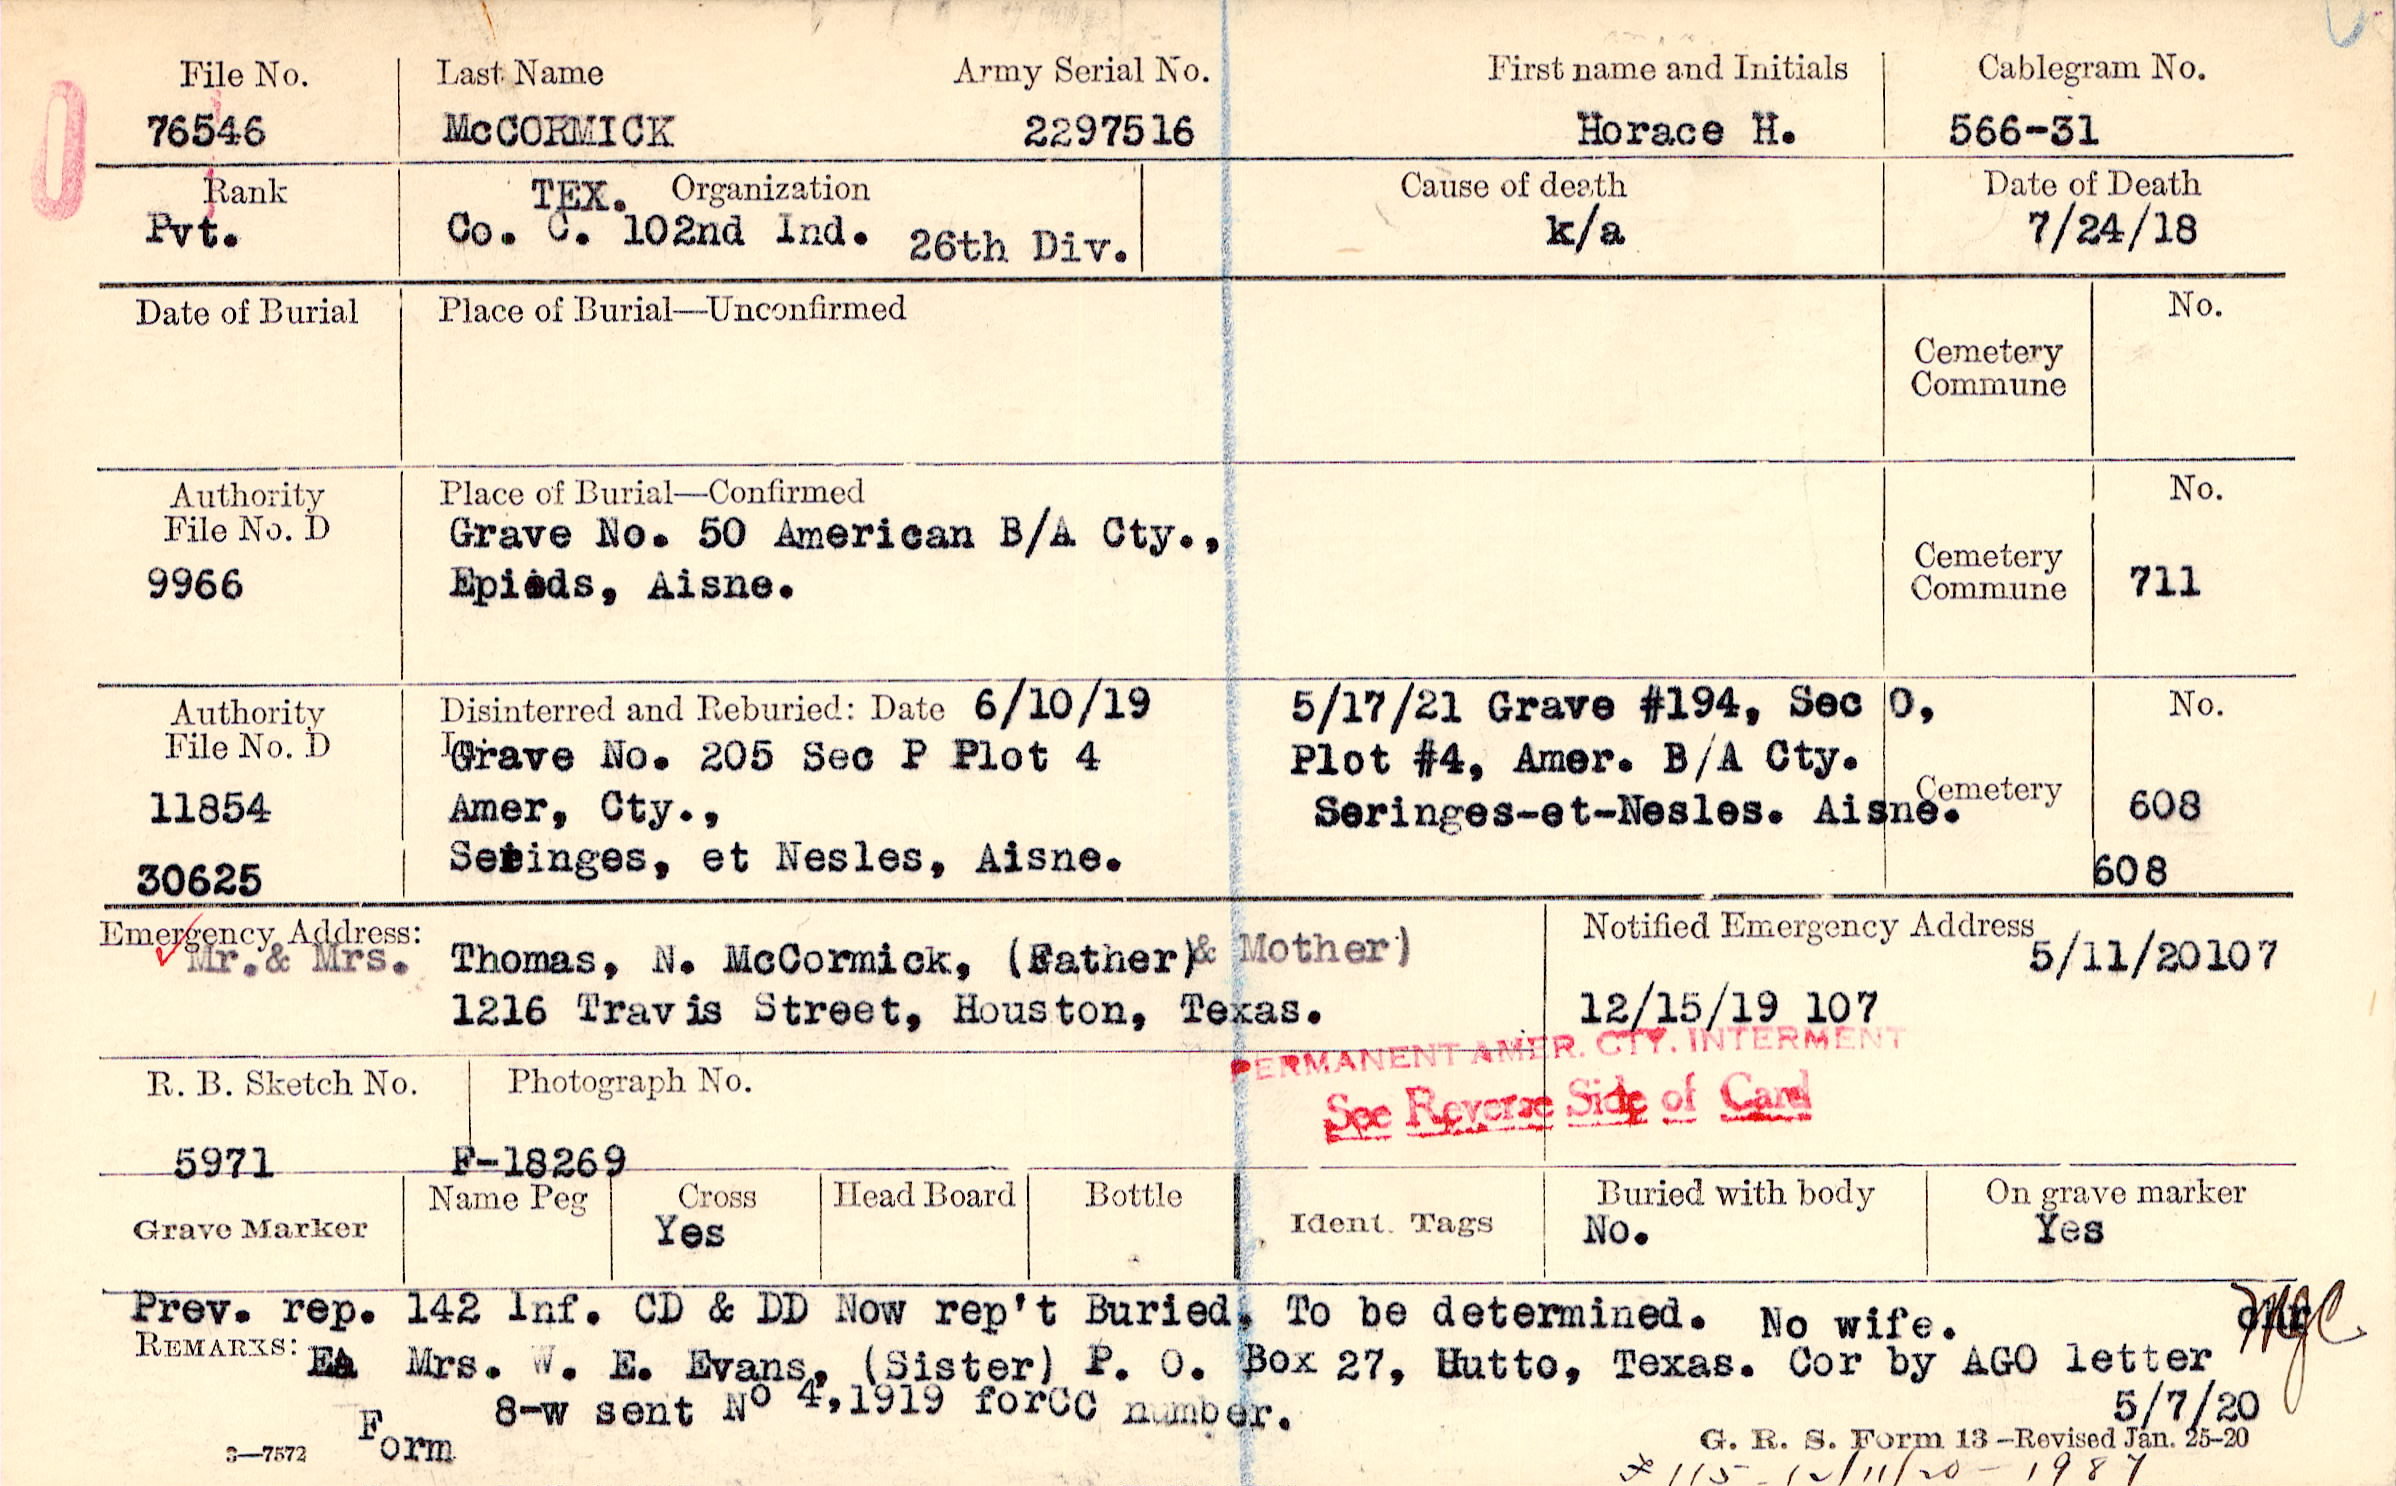 File No. Last Name Army Serial No. First name and Initials Cablegram No.
76546 McCORMICK 2297516 Horace H. 566-31
Rank TEX. Organization Cause of death Date of Death
Pvt. Co. C. 102nd Ind. 26th Div. k/a 7/24/18
Date of Burial Place of Burial—Unconfirmed No.
Cemetery
Commune
Authority Place of Burial—Confirmed No.
File No. D Grave No. 50 American B/A Cty.,
9966 Epieds, Aisne. Cemetery
Commune 711
Authority Disinterred and Reburied: Date 6/10/19 5/17/21 Grave #194, Sec O, No.
File No. D Grave No. 205 Sec P Plot 4 Plot #4, Amer. B/A Cty.
11854 Amer, Cty., Seringes-et-Nesles. Aisne. Cemetery 608
30625 Seringes, et Nesles, Aisne. 608
Emergency Address: Notified Emergency Address
Mr. & Mrs. Thomas, N. McCormick, (Father) & Mother) 5/11/20107
1216 Travis Street, Houston, Texas. 12/15/19 107
PERMANENT AMER. CTY. INTERMENT
R. B. Sketch No. Photograph No. See Reverse Side of Card
5971 F-18269
Grave Marker Name Peg Cross Head Board Bottle Ident. Tags Buried with body On grave marker
Yes No. Yes
Prev. rep. 142 Inf. CD & DD Now rep't Buried. To be determined. No wife.
REMARKS: EA Mrs. W. E. Evans, (Sister) P. O. Box 27, Hutto, Texas. Cor by AGO letter
8-w sent No 4,1919 forCC number. 5/7/20
Form
3—7572 G. R. S. Form 13—Revised Jan. 25-20
115 - 12/11/20 - 1987